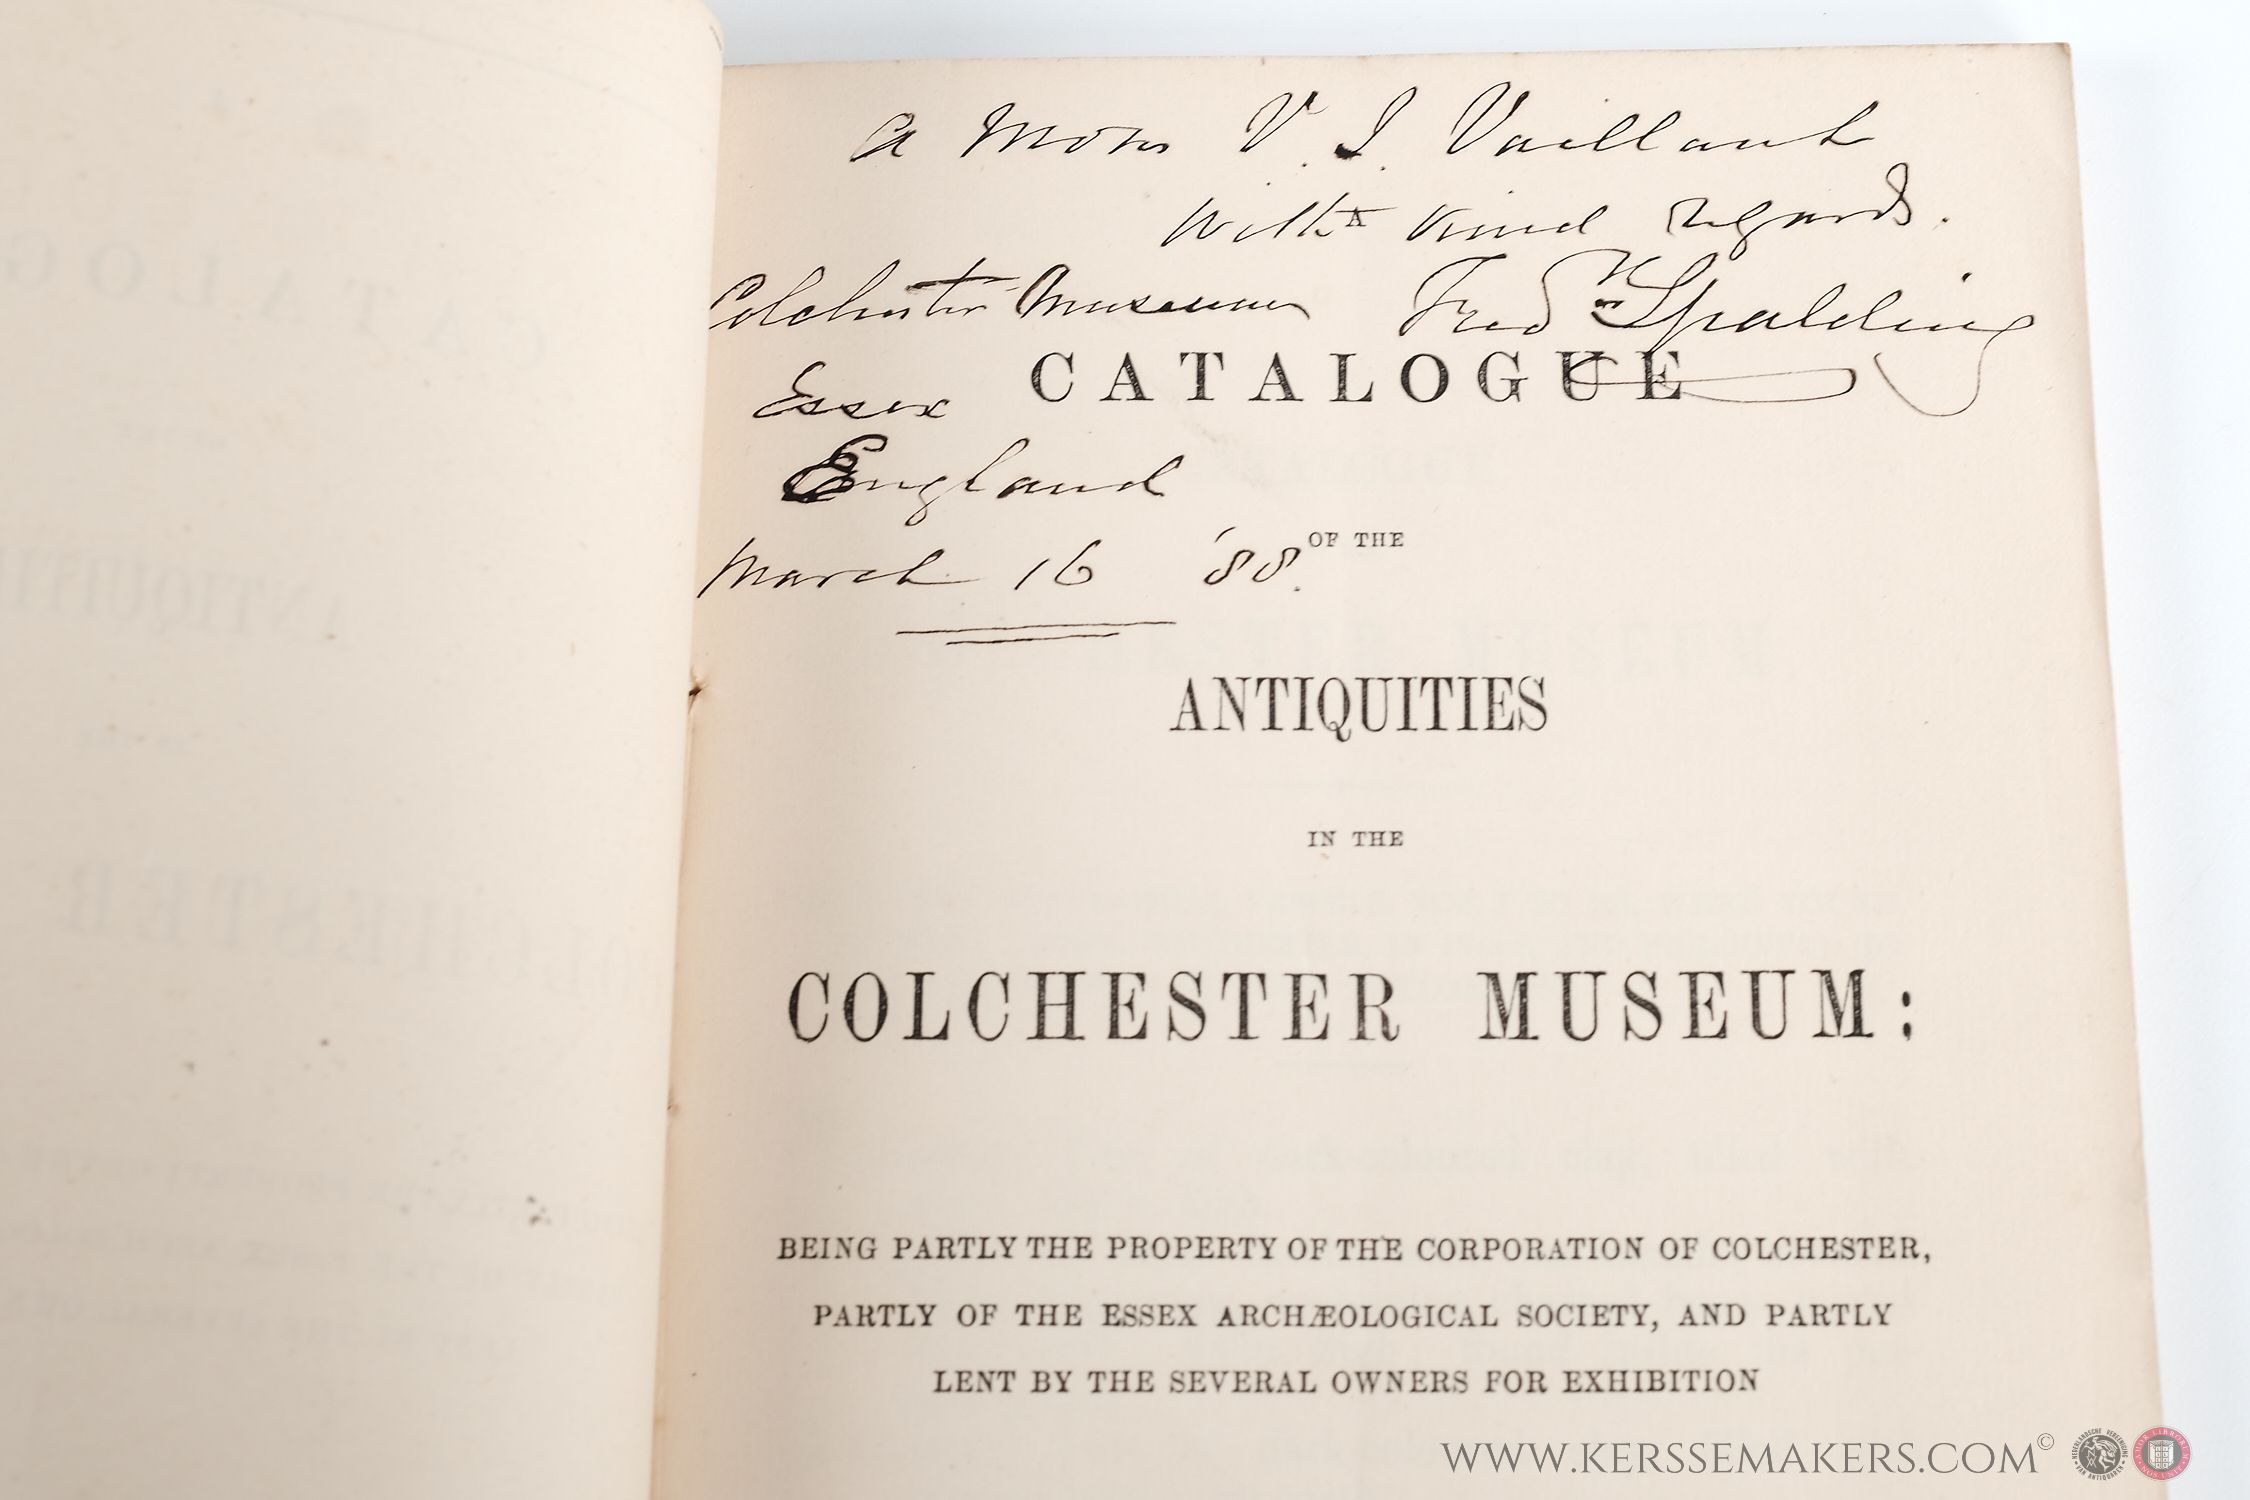 a Mons V. J. Vaillant
With kind regards.
Colchester Museum Fredk Spalding
Essex
England
March 16 '88.
CATALOGUE
OF THE
ANTIQUITIES
IN THE
COLCHESTER MUSEUM:
BEING PARTLY THE PROPERTY OF THE CORPORATION OF COLCHESTER,
PARTLY OF THE ESSEX ARCHÆOLOGICAL SOCIETY, AND PARTLY
LENT BY THE SEVERAL OWNERS FOR EXHIBITION
WWW.KERSSEMAKERS.COM©